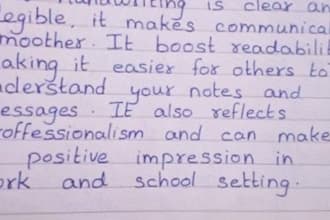 handwriting is clear an
egible, it makes communica
moother. It boost readabili
aking it easier for others to
nderstand your notes and
essages. It also reflects
roffessionalism and can make
positive impression in
ork and school setting.